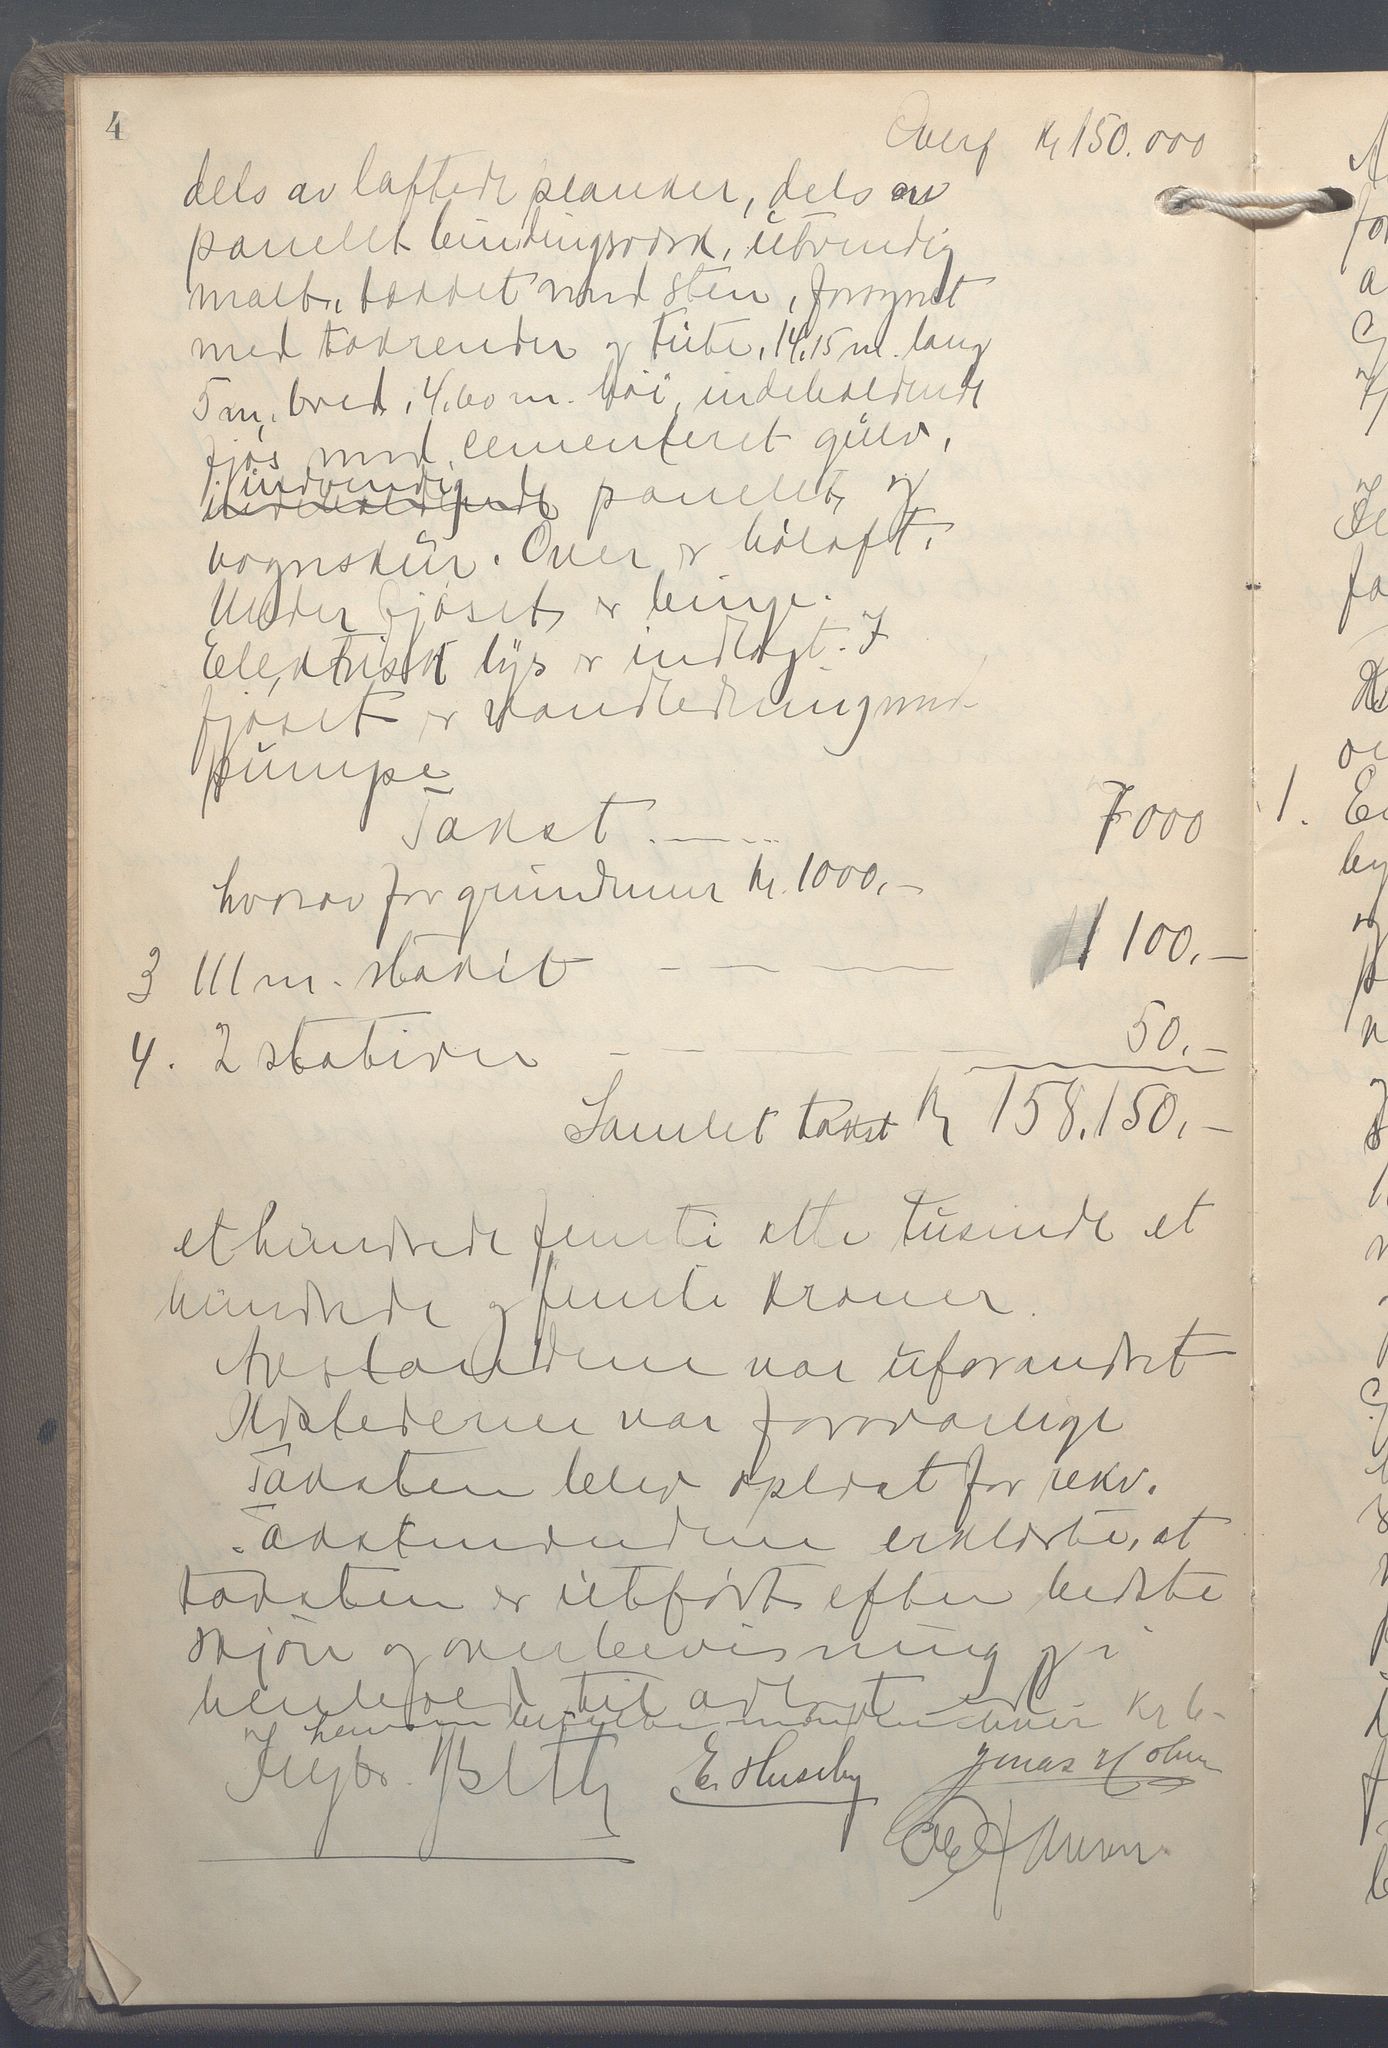 4
Overf Kr 150.000
dels av laftede planker, dels av
panelet bindingsværk, utvendig
malt, tækket med sten, forsynet
med takrender og tute, 14,15 m. lang
5 m. bred, 4,60 m. høi, indeholdende
fjøs med cementeret gulv,
indvendig panelet, og
vognskur. Over er høloft.
Under fjøset er binge.
Elektrisk lys er indlagt. I
fjøset er vandledning med
pumpe
Takst . — 7000
hvorav for grundmur Kr. 1000,-
3 111 m. stakit — — — 1 100,-
4. 2 stativer — — — 50,-
Samlet takst Kr 158,150,-
et hundrede femti otte tusinde et
hundrede og femti kroner.
Avstandene var uforandret
Ildstederne var forsvarlige
Taksten blev oplæst for rekv.
Takstmændene erklærte, at
taksten er utført efter bedste
skjøn og overbevisning og i
henhold til avlagt ed
E. Huseby
Jonas Holm